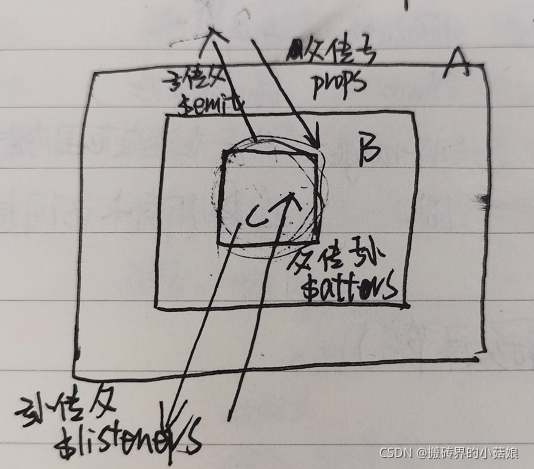 父传子
props
A
子传父
$emit
B
C
父传孙
$attors
孙传父
$listeners
CSDN @搬砖界的小菇娘